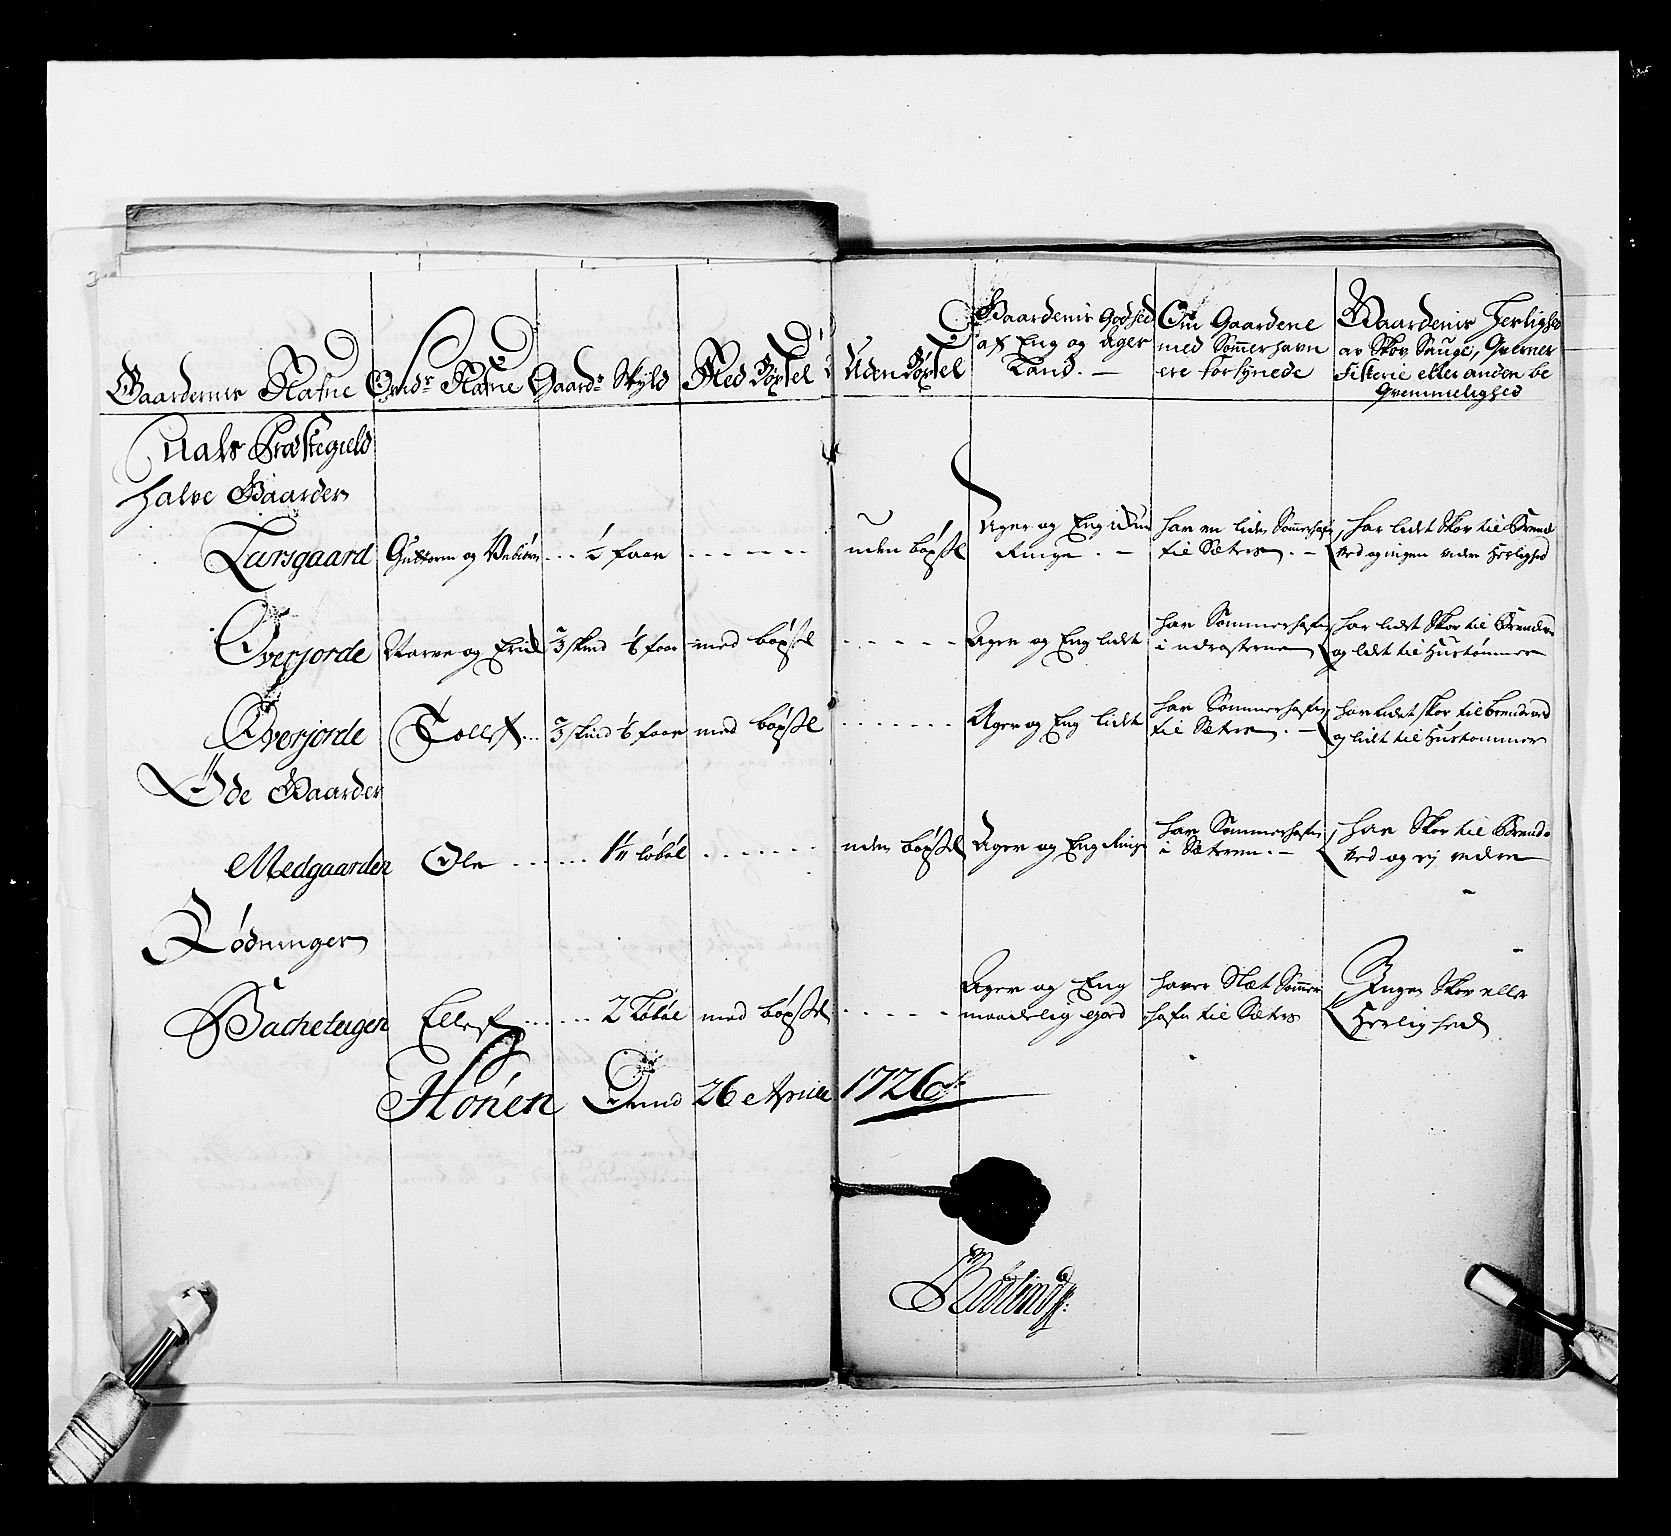 Gaardernis Nafne Opsid: Nafne Gaard: Skyld Med Böxsel Uden Böxsel Gaardenis Godhed af Eng og Ager Land. — Om Gaardene med Sömmerhavn ere forsynede Gaardenis Herlighed av Skov Sauge, Qverner Fiskerie eller anden be qvemmelighed
Aals Præstegield
halve Gaarder
Tursgaard Guttorm og Webiörn ... ½ faar ------ uden böxsel Ager og Eng ichun Ringe. — har en liden Sömmerhafn til Sæters. — har lidt Skov til Brend Ved og ingen videre Herlighed
Överjorde Narve og Erich 3 skind ⅙ faar med böxsel ----- Ager og Eng lidt har Sömmerhafn i udrasterne har lidet Skov til Brendeved og lidt til Hustömmer
Överjorde Tollef... 3 skind ⅙ faar med böxsel ...... Ager og Eng lidt har Sömmerhafn til Sæters. — har lidet skov til brendeved og lidt til Hustömmer
Öde Gaarder
Medgaarden Ole ...... 1½ löböl ------ uden böxsel Ager og Eng Ringe har Sömmerhafn i Sæteren. — har Skov til Brende Ved og ej videre
Rödninger
Bacheteigen Ellef ...... 2 Löböl med böxsel ----- Ager og Eng maadelig god haver Slæt Sömmer hafn til Sæters Ingen Skov eller Herlighed
Hönen Dend 26 Aprill 1726